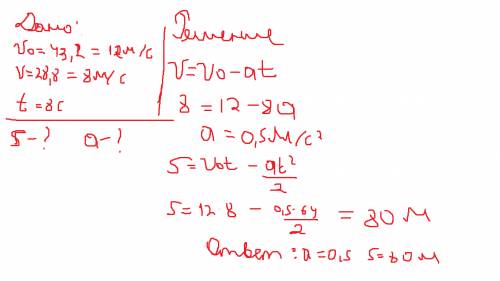 Дано:
v₀=43,2=12м/с
v=28,8=8м/с
t=8с
S-? a-?
Решение
V=V₀-at
8=12-8a
a=0,5м/с²
S=V₀t - at²/2
S=12 8 - 0,5·64/2 = 80 м
Ответ: a=0,5 S=80 м